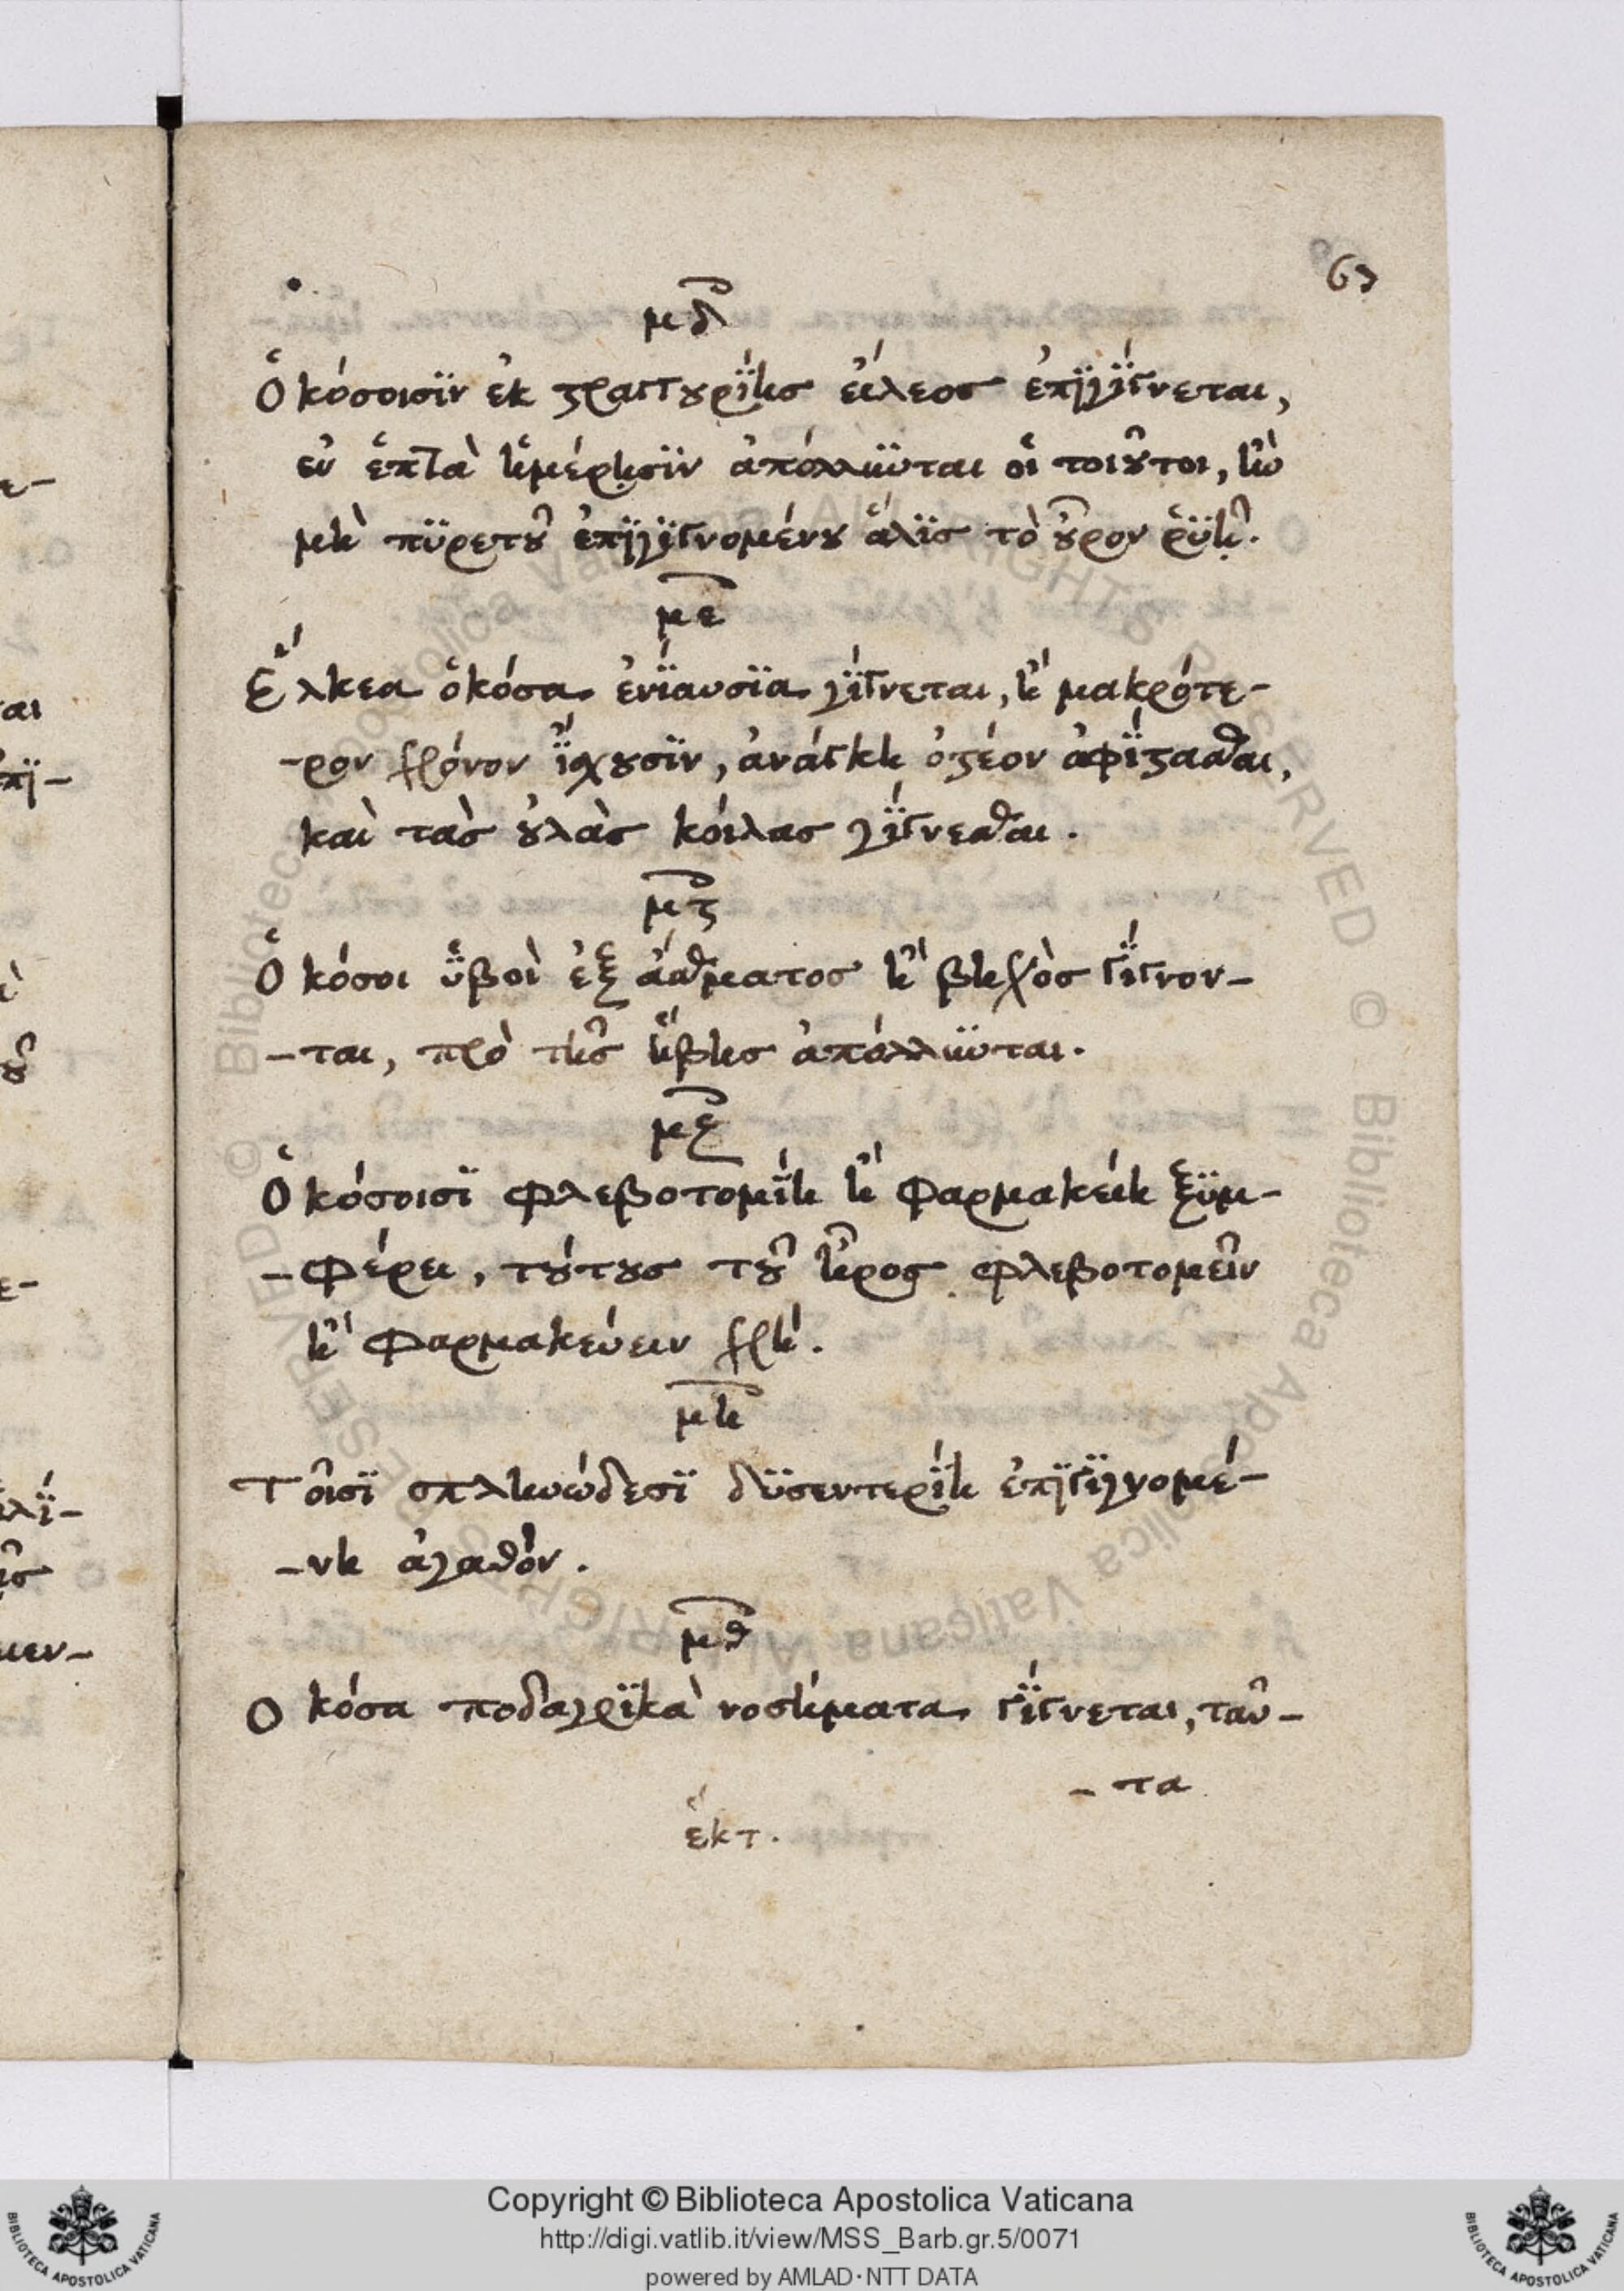 67
μδ
Ὁκόσοισϊν ἐκ στραγγουρΐης εἴλεος ἐπϊγΐγνεται,
ἐν ἑπτὰ ἡμέρῃσϊν ἀπόλλϋνται οἱ τοιοῦτοι, ἢν
μὴ πϋρετοῦ ἐπϊγϊγνομένου ἅλϊς τὸ οὖρον ῥϋῇ.
με
Ἕλκεα ὁκόσα ἐνϊαυσϊα γΐγνεται, ἢ μακρότε-
-ρον χρόνον ΐσχουσϊν, ἀνάγκη ὀστέον ἀφΐστασθαι,
καὶ τὰς οὐλὰς κοίλας γΐγνεσθαι.
μϛ
Ὁκόσοι ὕβοὶ ἐξ ἄσθματος ἢ βηχὸς γΐγνον-
-ται, πρὸ τῆς ἥβης ἀπόλλϋνται.
μζ
Ὁκόσοισϊ φλεβοτομΐη ἢ φαρμακείη ξϋμ-
-φέρει, τούτους τοῦ ἦρος φλεβοτομεῖν
ἢ φαρμακεύειν χρή.
μη
Τοῖσϊ σπληνώδεσϊ δϋσεντερΐη ἐπϊγϊγνομέ-
-νη ἀγαθόν.
μθ
Οκόσα ποδαγρϊκὰ νοσήματα γΐγνεται, ταῦ-
-τα
ἑκτ.
Copyright © Biblioteca Apostolica Vaticana
http://digi.vatlib.it/view/MSS_Barb.gr.5/0071
powered by AMLAD·NTT DATA